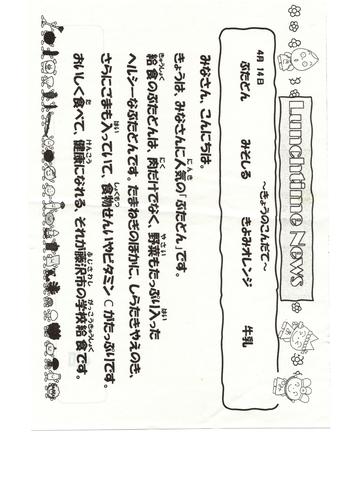 Lunchtime News
～きょうのこんだて～
4月 14日
ぶたどん みそしる きよみオレンジ 牛乳
みなさん、こんにちは。
きょうは、みなさんに人気の「ぶたどん」です。
給食のぶたどんは、肉だけでなく、野菜もたっぷり入った
ヘルシーなぶたどんです。たまねぎのほかに、しらたきやえのき、
さらにごまも入っていて、食物せんいやビタミンCがたっぷりです。
おいしく食べて、健康になれる、それが藤沢市の学校給食です。